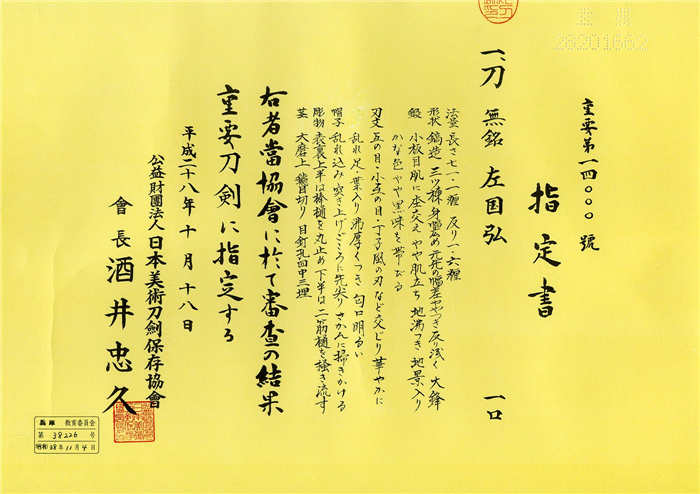 重要第一四〇〇〇號
指定書
一、刀 無銘 左国弘 一口
法量 長さ七一・一糎 反り一・六糎
形状 鎬造 三ツ棟 身幅広め 元先の幅差ややつき 反り浅く 大鋒
鍛 小板目肌に杢交え やや肌立ち 地沸つき 地景入り
かな色やや黒味を帯びる
刃文 互の目・小互の目・丁子風の刃など交じり 華やかに
乱れ 足・葉入り 沸厚くつき 匂口明るい
帽子 乱れ込み 突き上げごころに先尖り さかんに掃きかける
彫物 表裏上半は棒樋を丸止め 下半は二筋樋を掻き流す
茎 大磨上 鑢目切り 目釘孔四中三埋
右者當協會に於て審査の結果
重要刀剣に指定する
平成二十八年十月十八日
公益財團法人 日本美術刀劍保存協會
會長 酒井忠久
兵庫 教育委員会
第 38226 号
昭和 38年11月4日